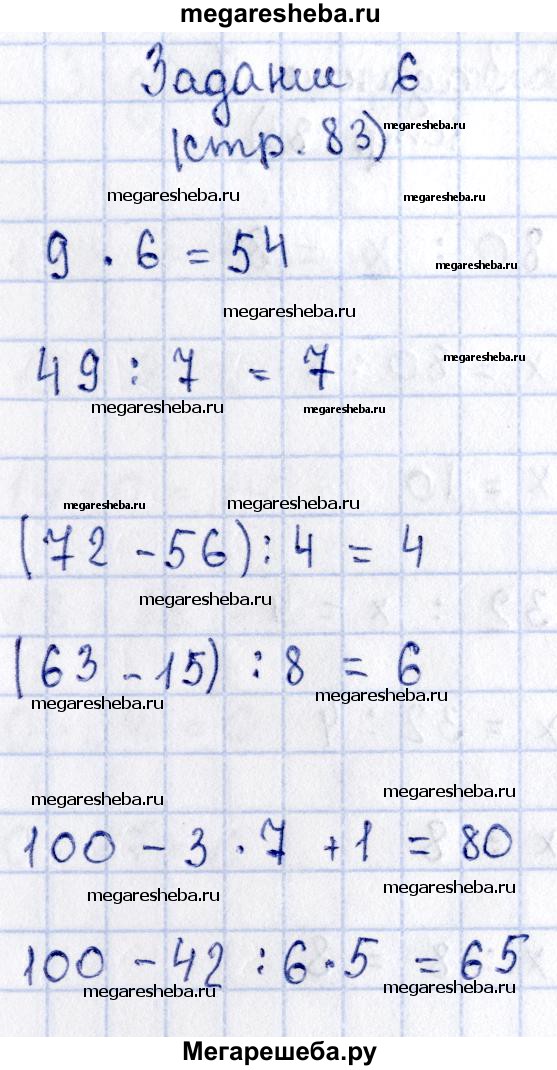 megaresheba.ru
Задание 6
megaresheba.ru
(стр. 83)
megaresheba.ru megaresheba.ru
9 · 6 = 54
megaresheba.ru
megaresheba.ru
49 : 7 = 7
megaresheba.ru
megaresheba.ru megaresheba.ru
megaresheba.ru megaresheba.ru
(72 - 56) : 4 = 4
megaresheba.ru
(63 - 15) : 8 = 6
megaresheba.ru megaresheba.ru
megaresheba.ru megaresheba.ru
100 - 3 · 7 + 1 = 80
megaresheba.ru megaresheba.ru
100 - 42 : 6 · 5 = 65
megaresheba.ru megaresheba.ru
Мегарешеба.ру